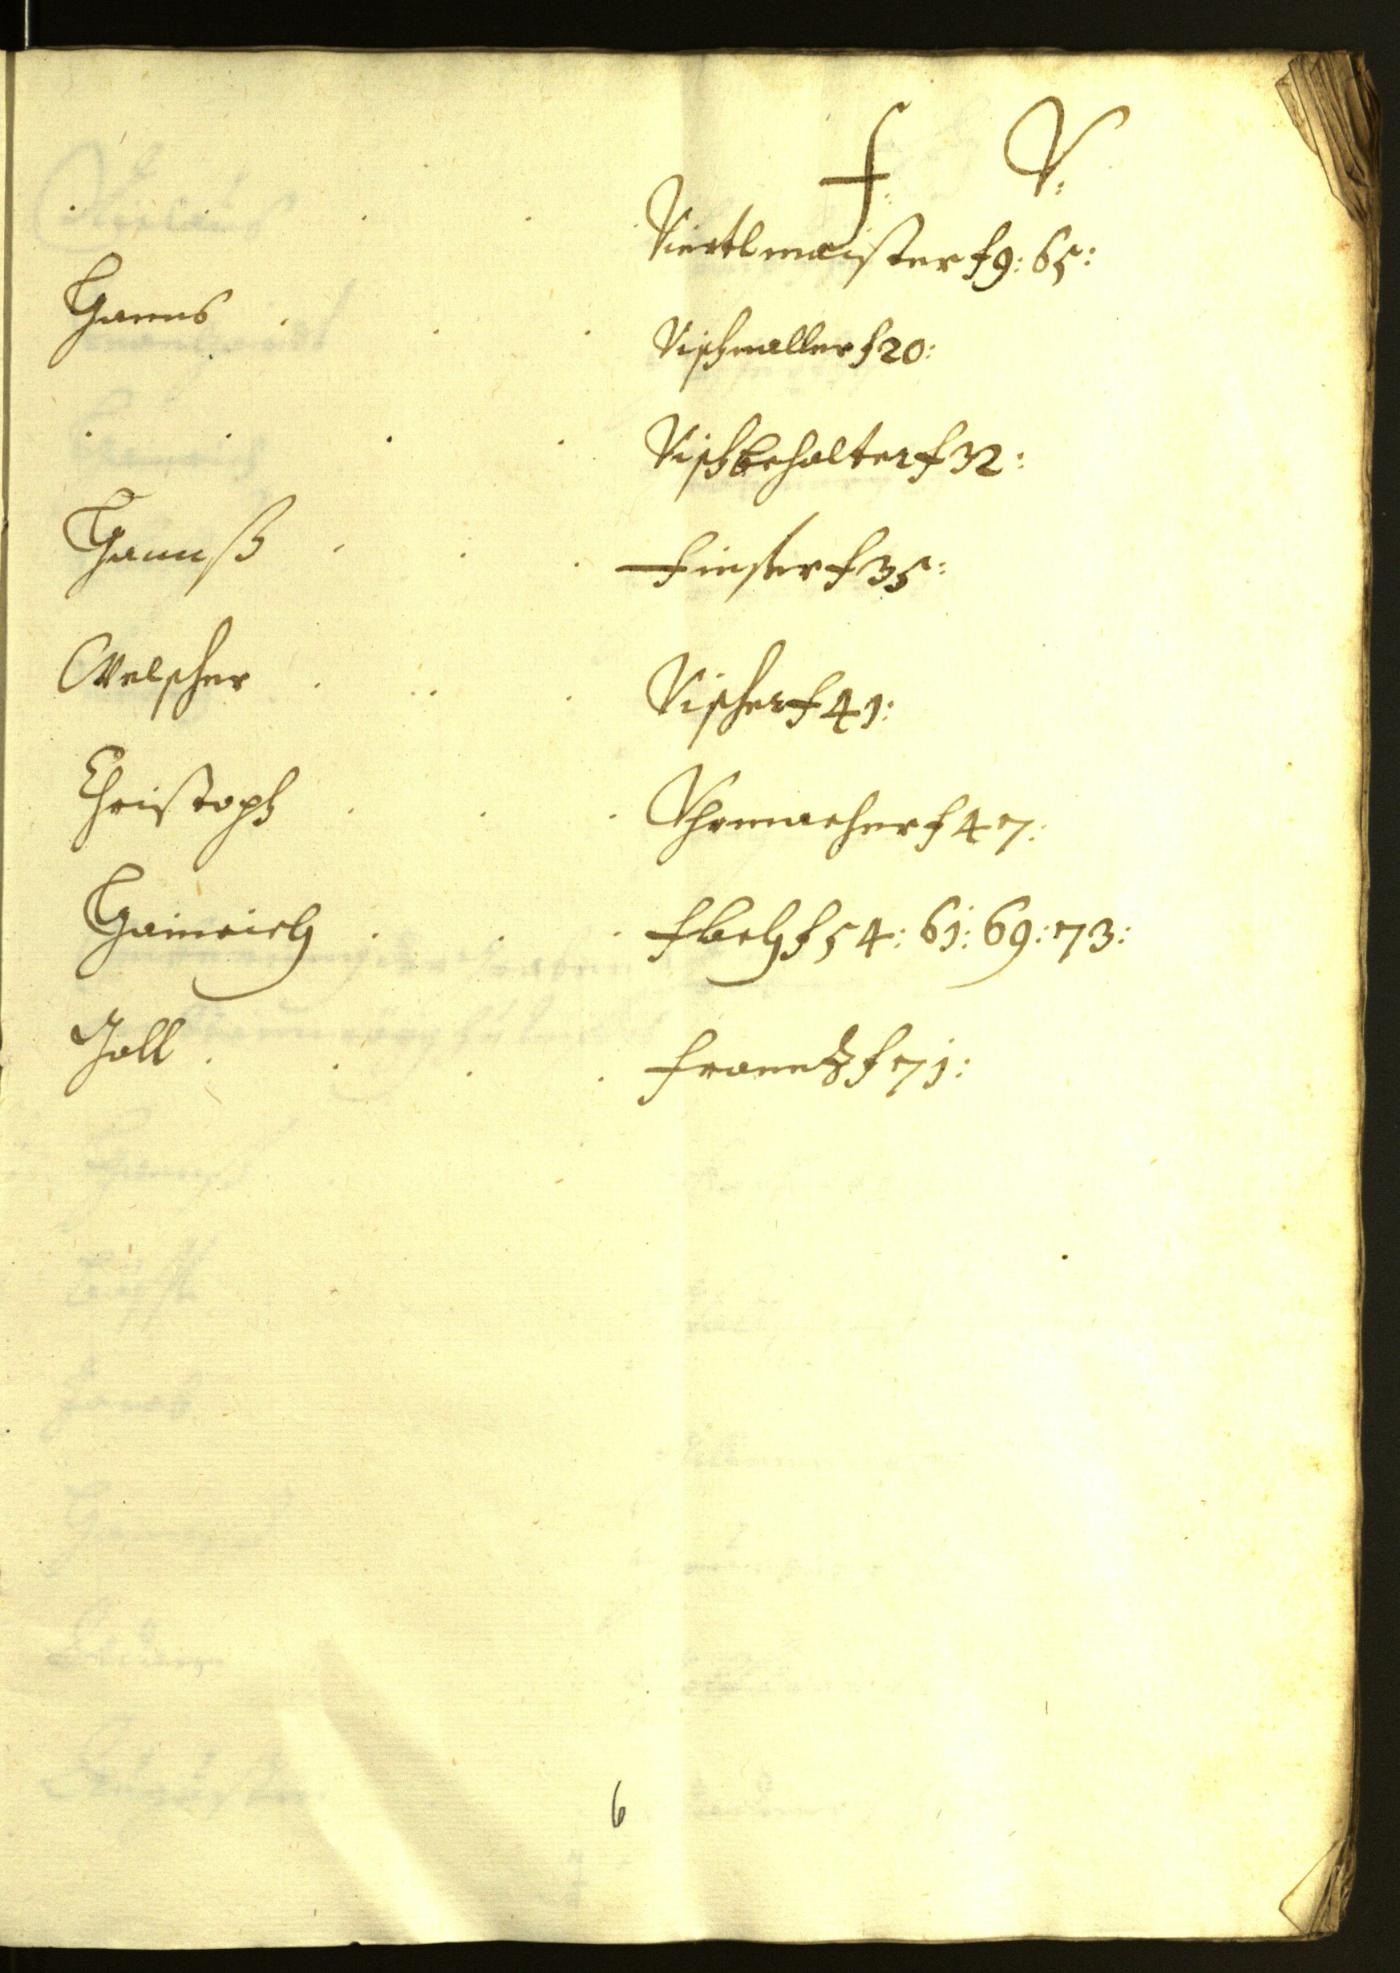 f: V:
. . . . Viertlmaister f 9: 65:
Hanns . . . Vischmaller f 20:
. . . . Vischbehalter f 32:
Hannß . . . Finster f 35:
Welscher . . . Vischer f 41:
Christoph . . . Vhrmacher f 47:
Hainrich . . . f 54: 61: 69: 73:
Zoll . . . . Franntz f 71:
6